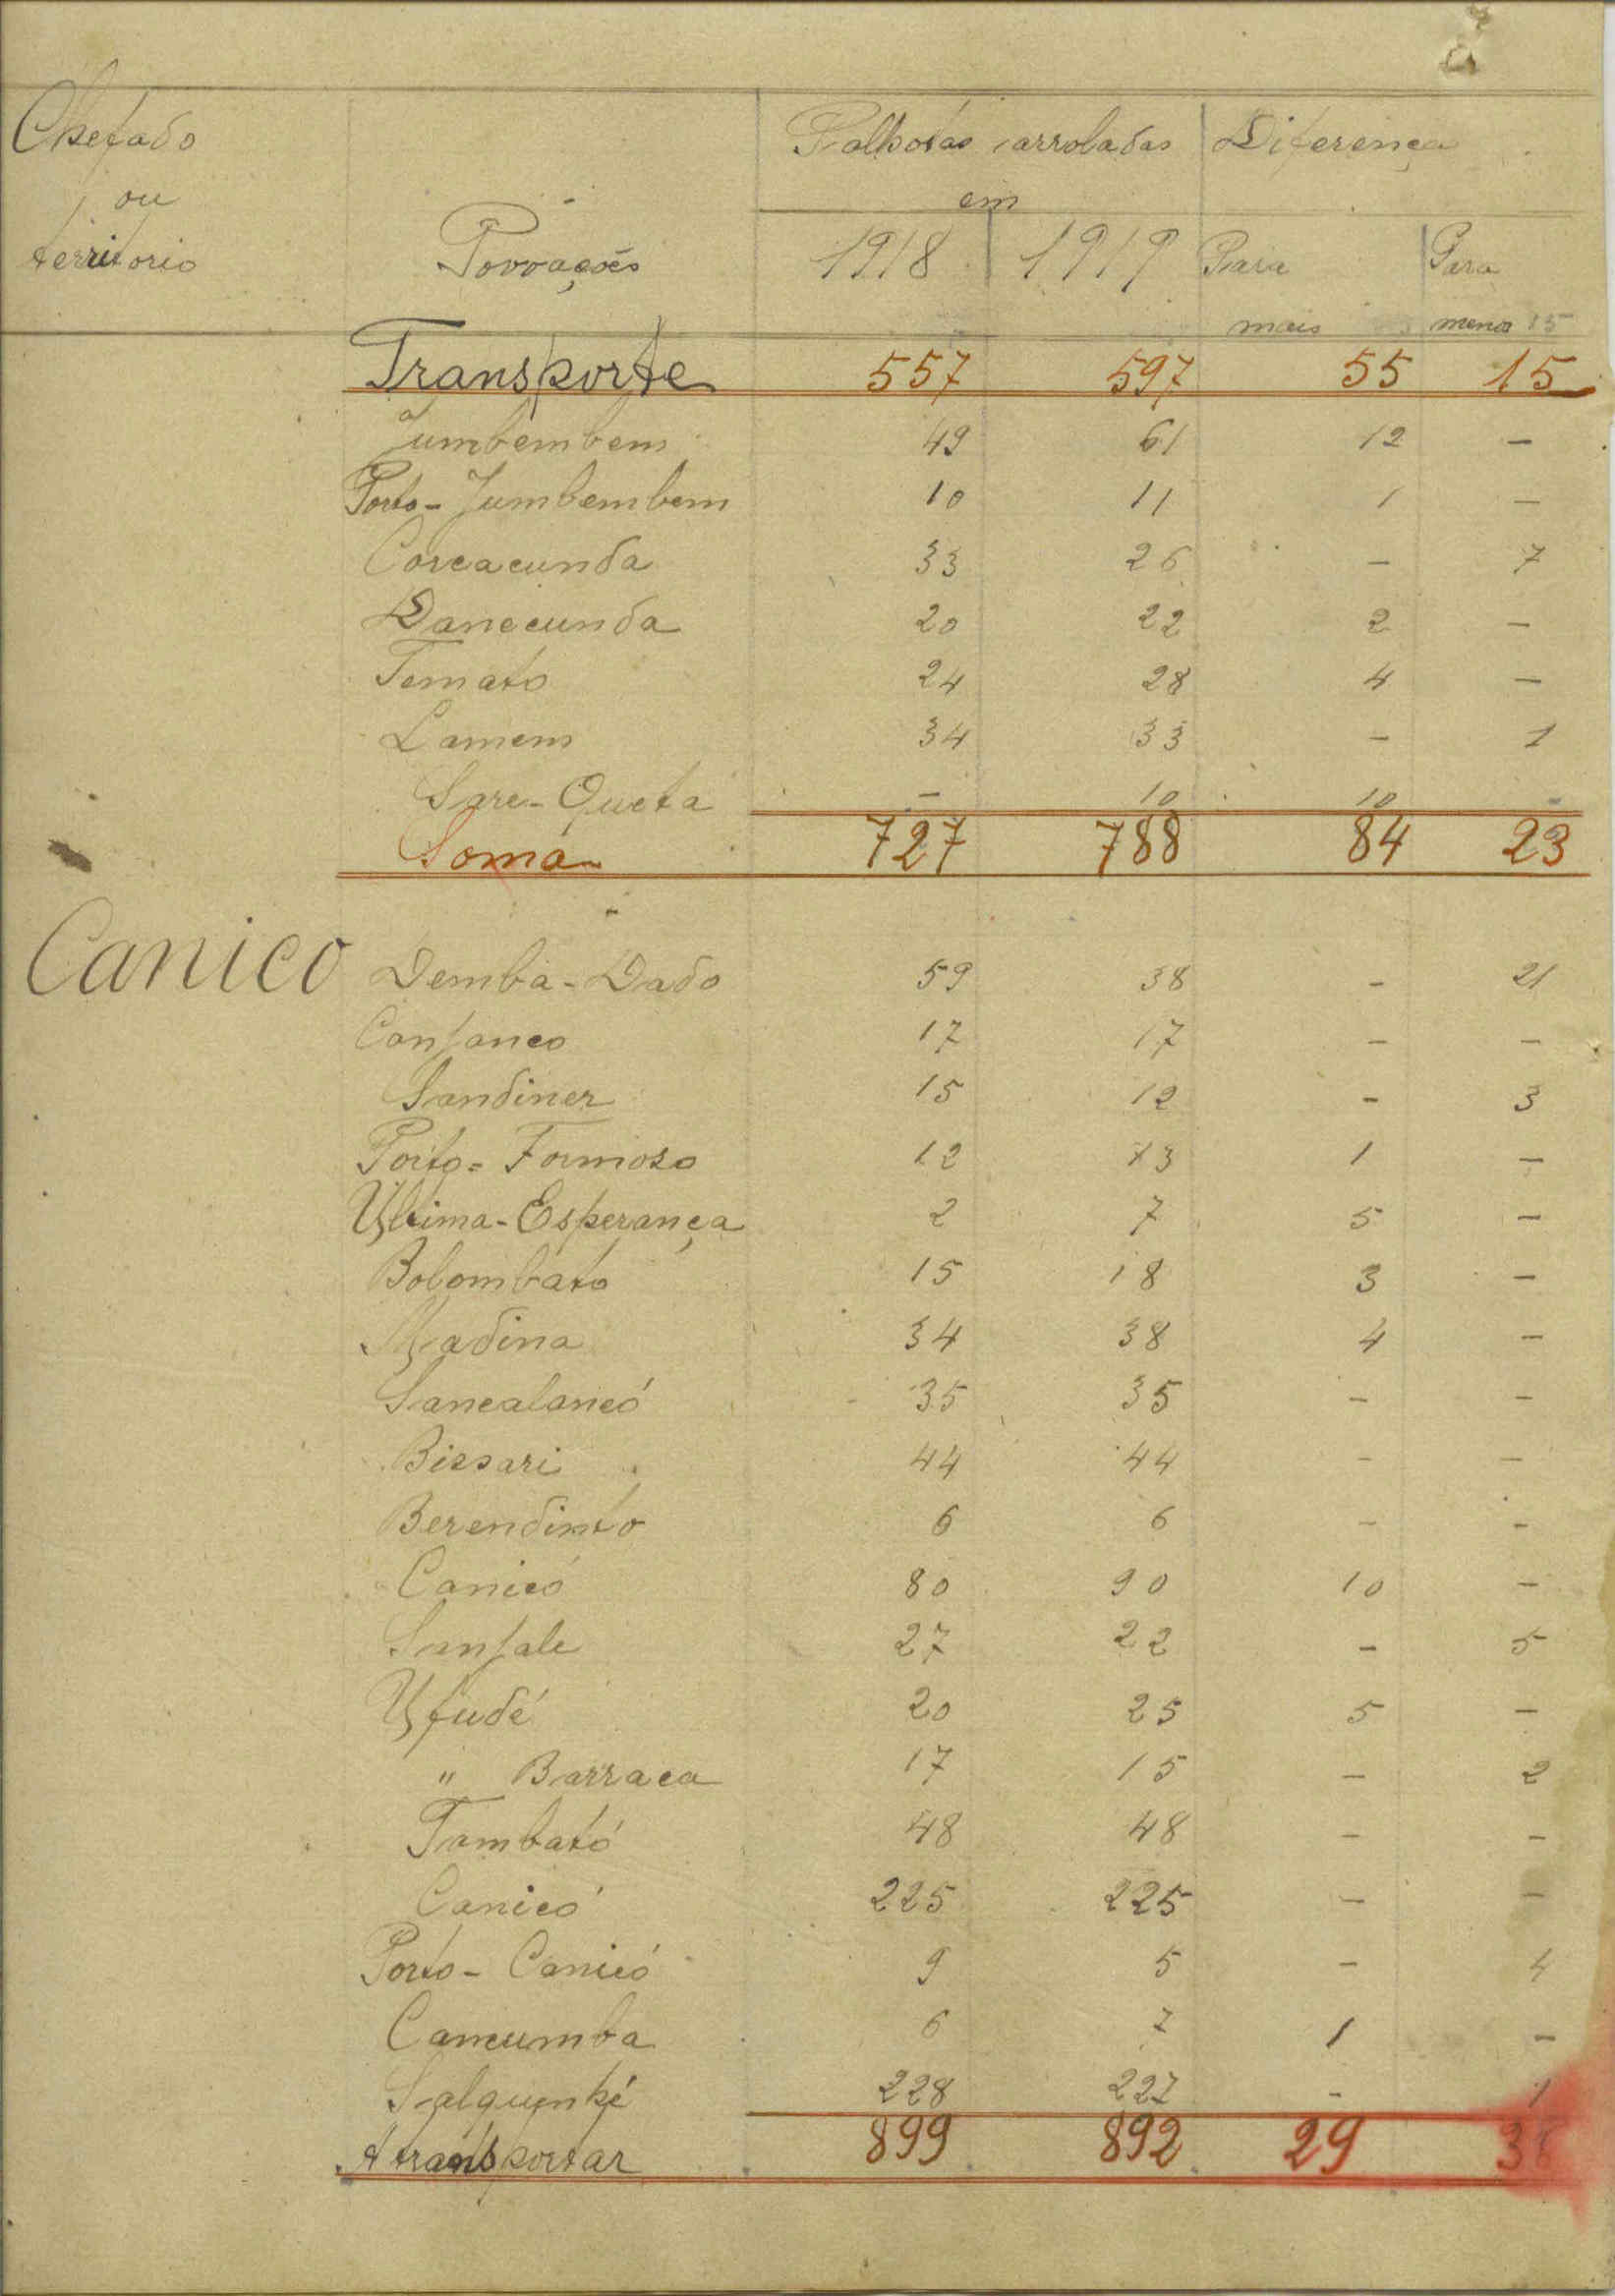 Chefado
ou
territorio
Povoações
Palhotas arroladas
em
1918 1919
Diferença
Para mais
Para menos
Transporte 557 597 55 15
Jumbembem 49 61 12 -
Porto-Jumbembem 10 11 1 -
Coreacunda 33 26 - 7
Danecunda 20 22 2 -
Temato 24 28 4 -
Lamem 34 33 - 1
Sare-Queta - 10 10 -
Soma 727 788 84 23
Canico Demba-Dado 59 38 - 21
Canjanco 17 17 - -
Sandiner 15 12 - 3
Porto-Formoso 12 13 1 -
Ultima-Esperança 2 7 5 -
Bolombato 15 18 3 -
Madina 34 38 4 -
Sancalancó 35 35 - -
Bissari 44 44 - -
Berendinto 6 6 - -
Canicó 80 90 10 -
Sanjale 27 22 - 5
Ufudé 20 25 5 -
" Barraca 17 15 - 2
Tambató 48 48 - -
Canicó 225 225 - -
Porto-Canicó 9 5 - 4
Camcumba 6 7 1 -
Salquenhé 228 227 - 1
A transportar 899 892 29 36